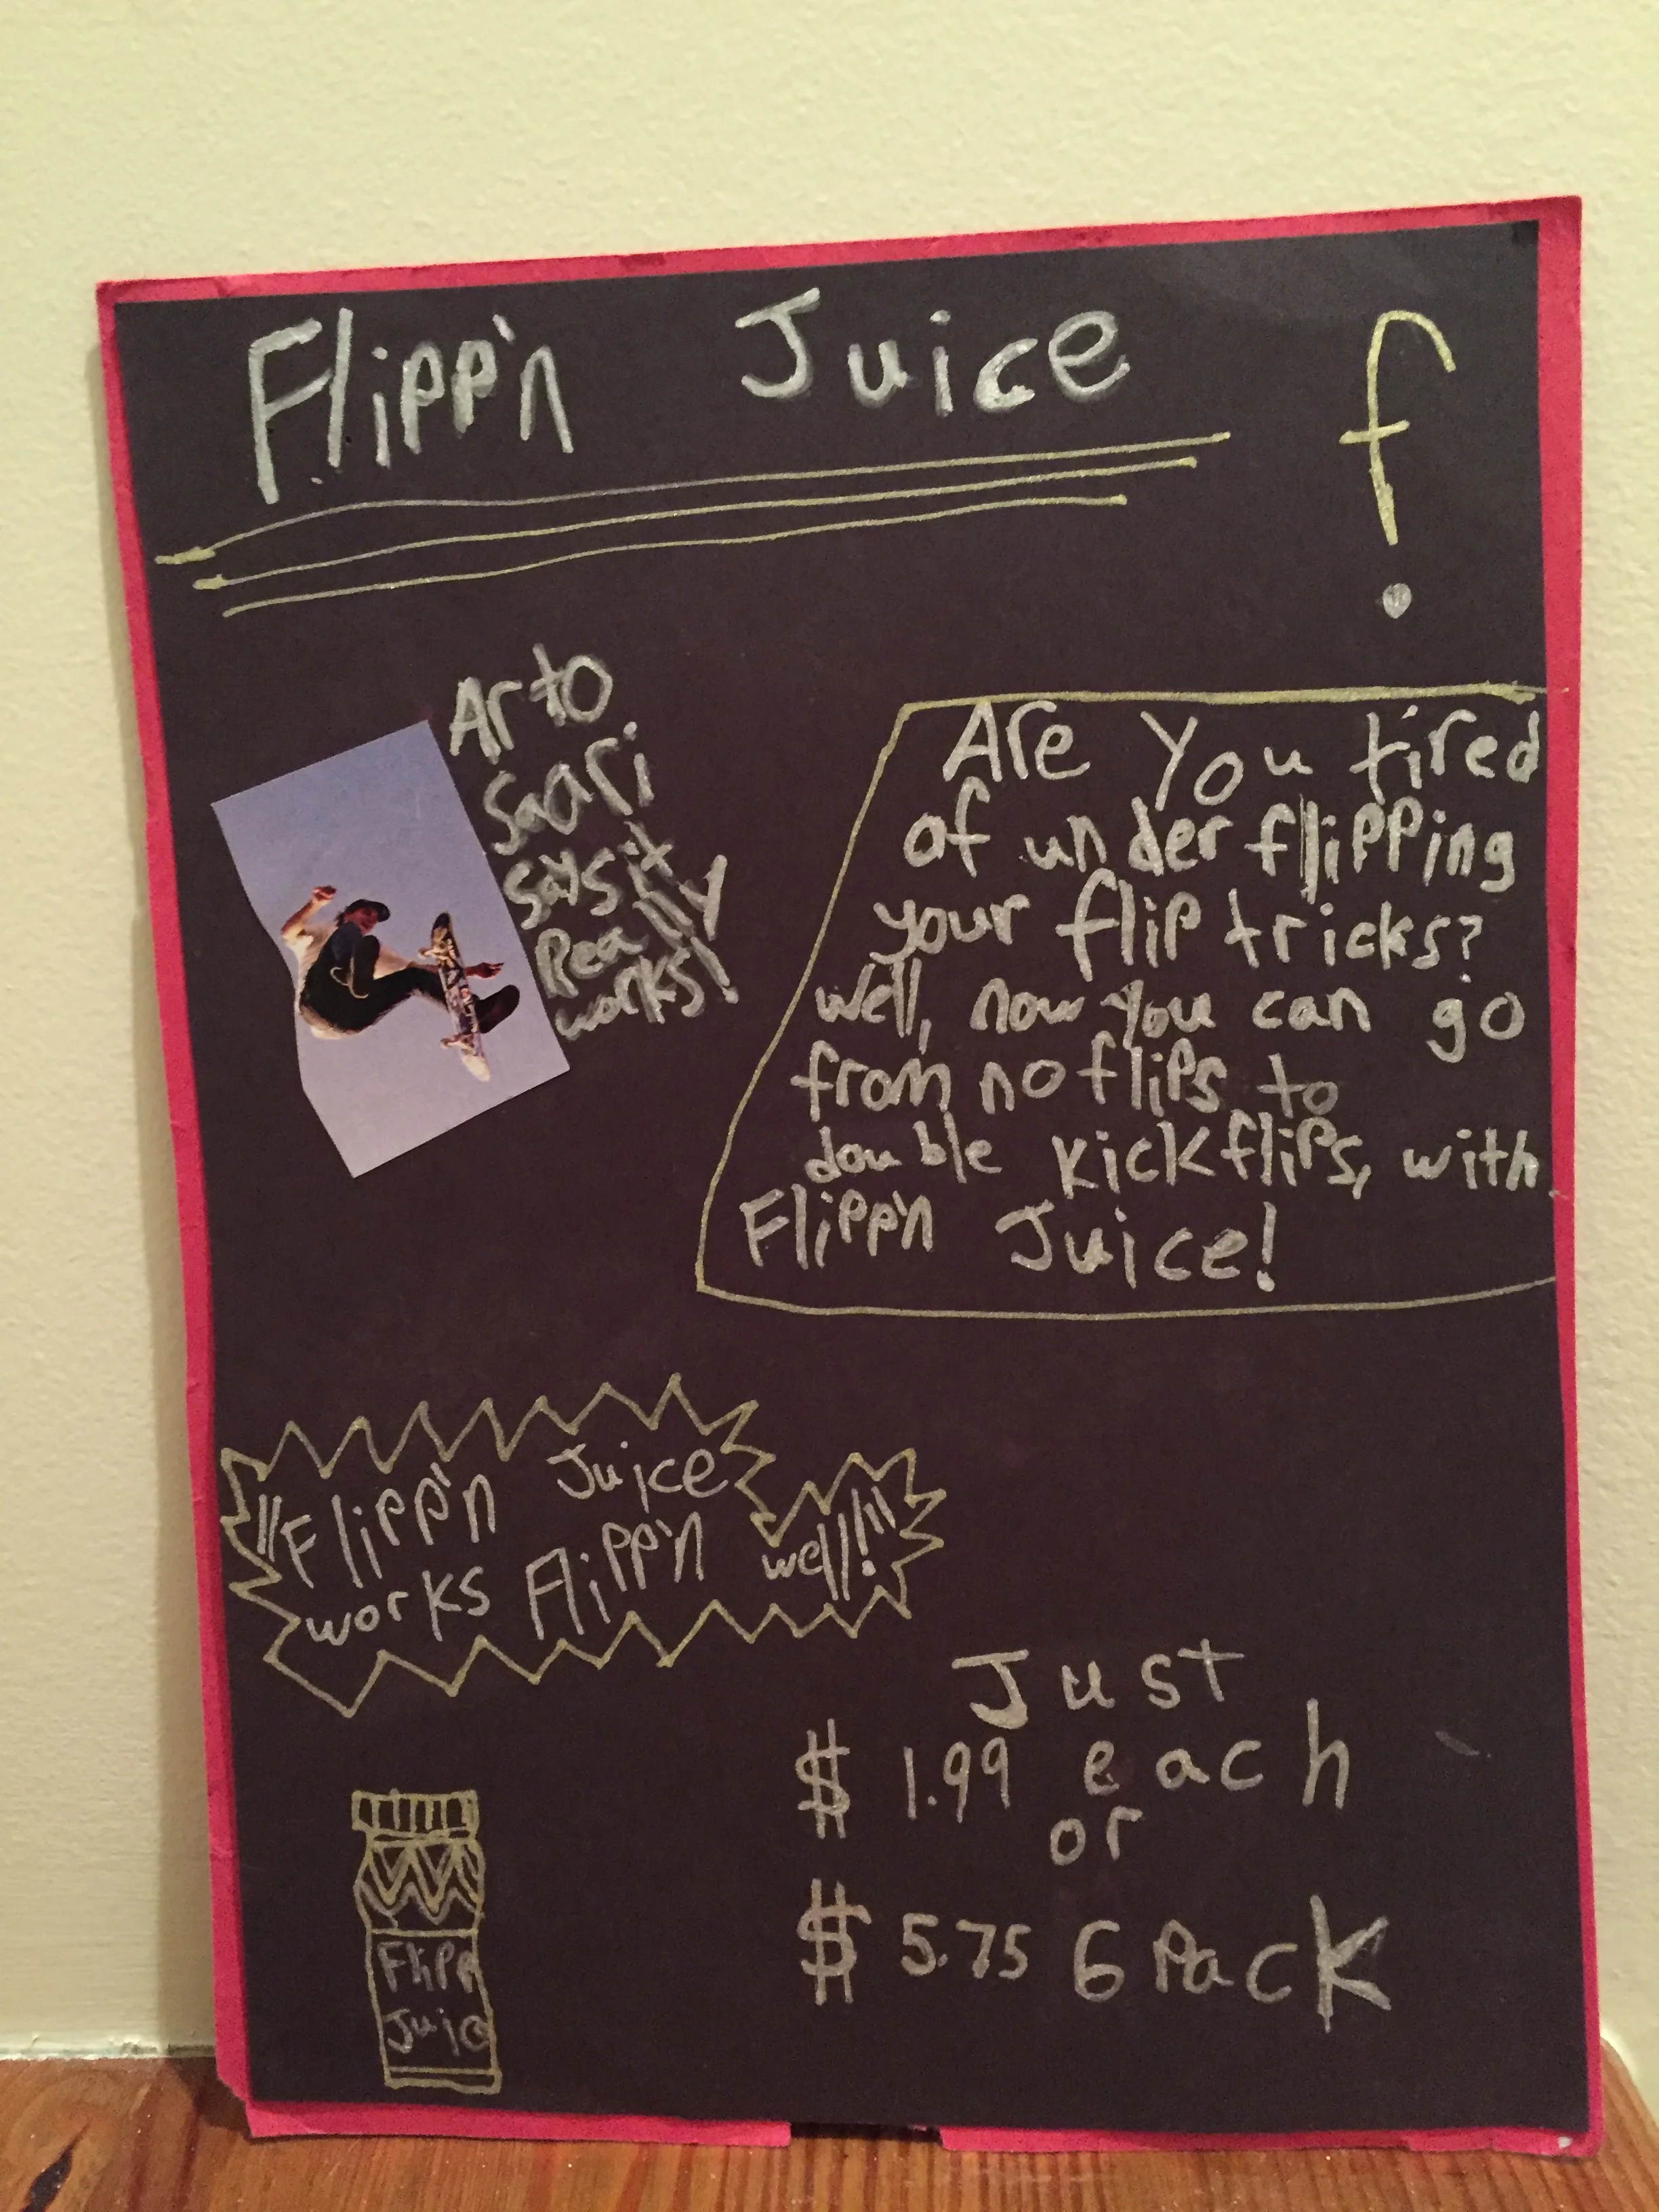 Flipp'n Juice
f
Arto
Saari
says it
Really
works!
Are You tired
of under flipping
your flip tricks?
well, now you can go
from no flips to
double kickflips, with
Flipp'n Juice!
"Flipp'n Juice
works Flipp'n well!"
Just
$ 1.99 each
or
$ 5.75 6 Pack
Flipp
Juic